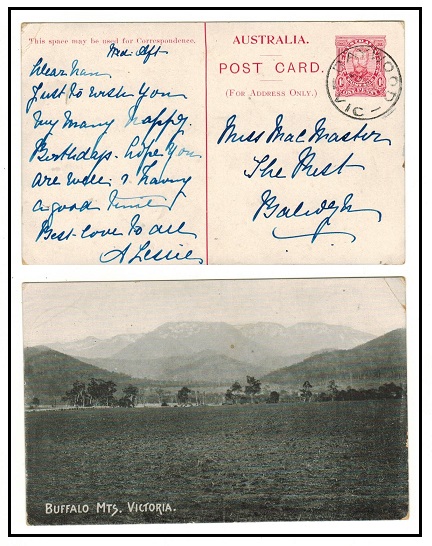 This space may be used for Correspondence.
Wed: Aft
Dear Nan
Just to wish You
my many happy
Birthdays. hope You
are well & having
a good time
Best love to all
A Lessie
AUSTRALIA.
POST CARD.
(FOR ADDRESS ONLY.)
Miss MacMaster
The Rest
Balwyn
VIC
BUFFALO MTS, VICTORIA.